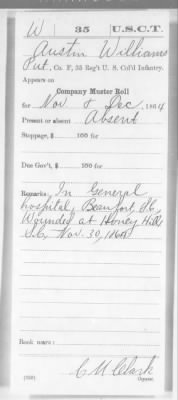 W 35 U.S.C.T.
Austin Williams
Pvt., Co. F, 35 Reg't U. S. Col'd Infantry.
Appears on
Company Muster Roll
for Nov & Dec, 1864
Present or absent Absent
Stoppage, $ 100 for
Due Gov't, $ 100 for
Remarks: In General
hospital, Beaufort, S.C.
Wounded at Honey Hill
S.C. Nov. 30, 1864
Book mark:
C M Clark
(358) Copyist.